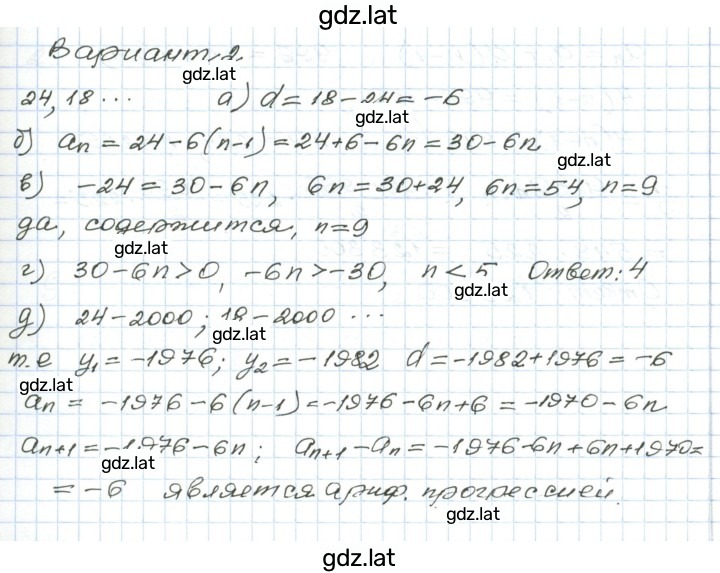 gdz.lat
Вариант 2.
gdz.lat
24, 18 ... а) d = 18 - 24 = -6
gdz.lat
б) an = 24 - 6(n-1) = 24 + 6 - 6n = 30 - 6n
gdz.lat
в) -24 = 30 - 6n, 6n = 30 + 24, 6n = 54, n = 9
да, содержится, n = 9
gdz.lat
г) 30 - 6n > 0, -6n > -30, n < 5 Ответ: 4
gdz.lat
д) 24 - 2000; 18 - 2000 ...
gdz.lat
т.е y1 = -1976; y2 = -1982 d = -1982 + 1976 = -6
gdz.lat
an = -1976 - 6(n-1) = -1976 - 6n + 6 = -1970 - 6n
an+1 = -1976 - 6n; an+1 - an = -1976 - 6n + 6n + 1970 =
gdz.lat
= -6 является ариф. прогрессией.
gdz.lat
gdz.lat